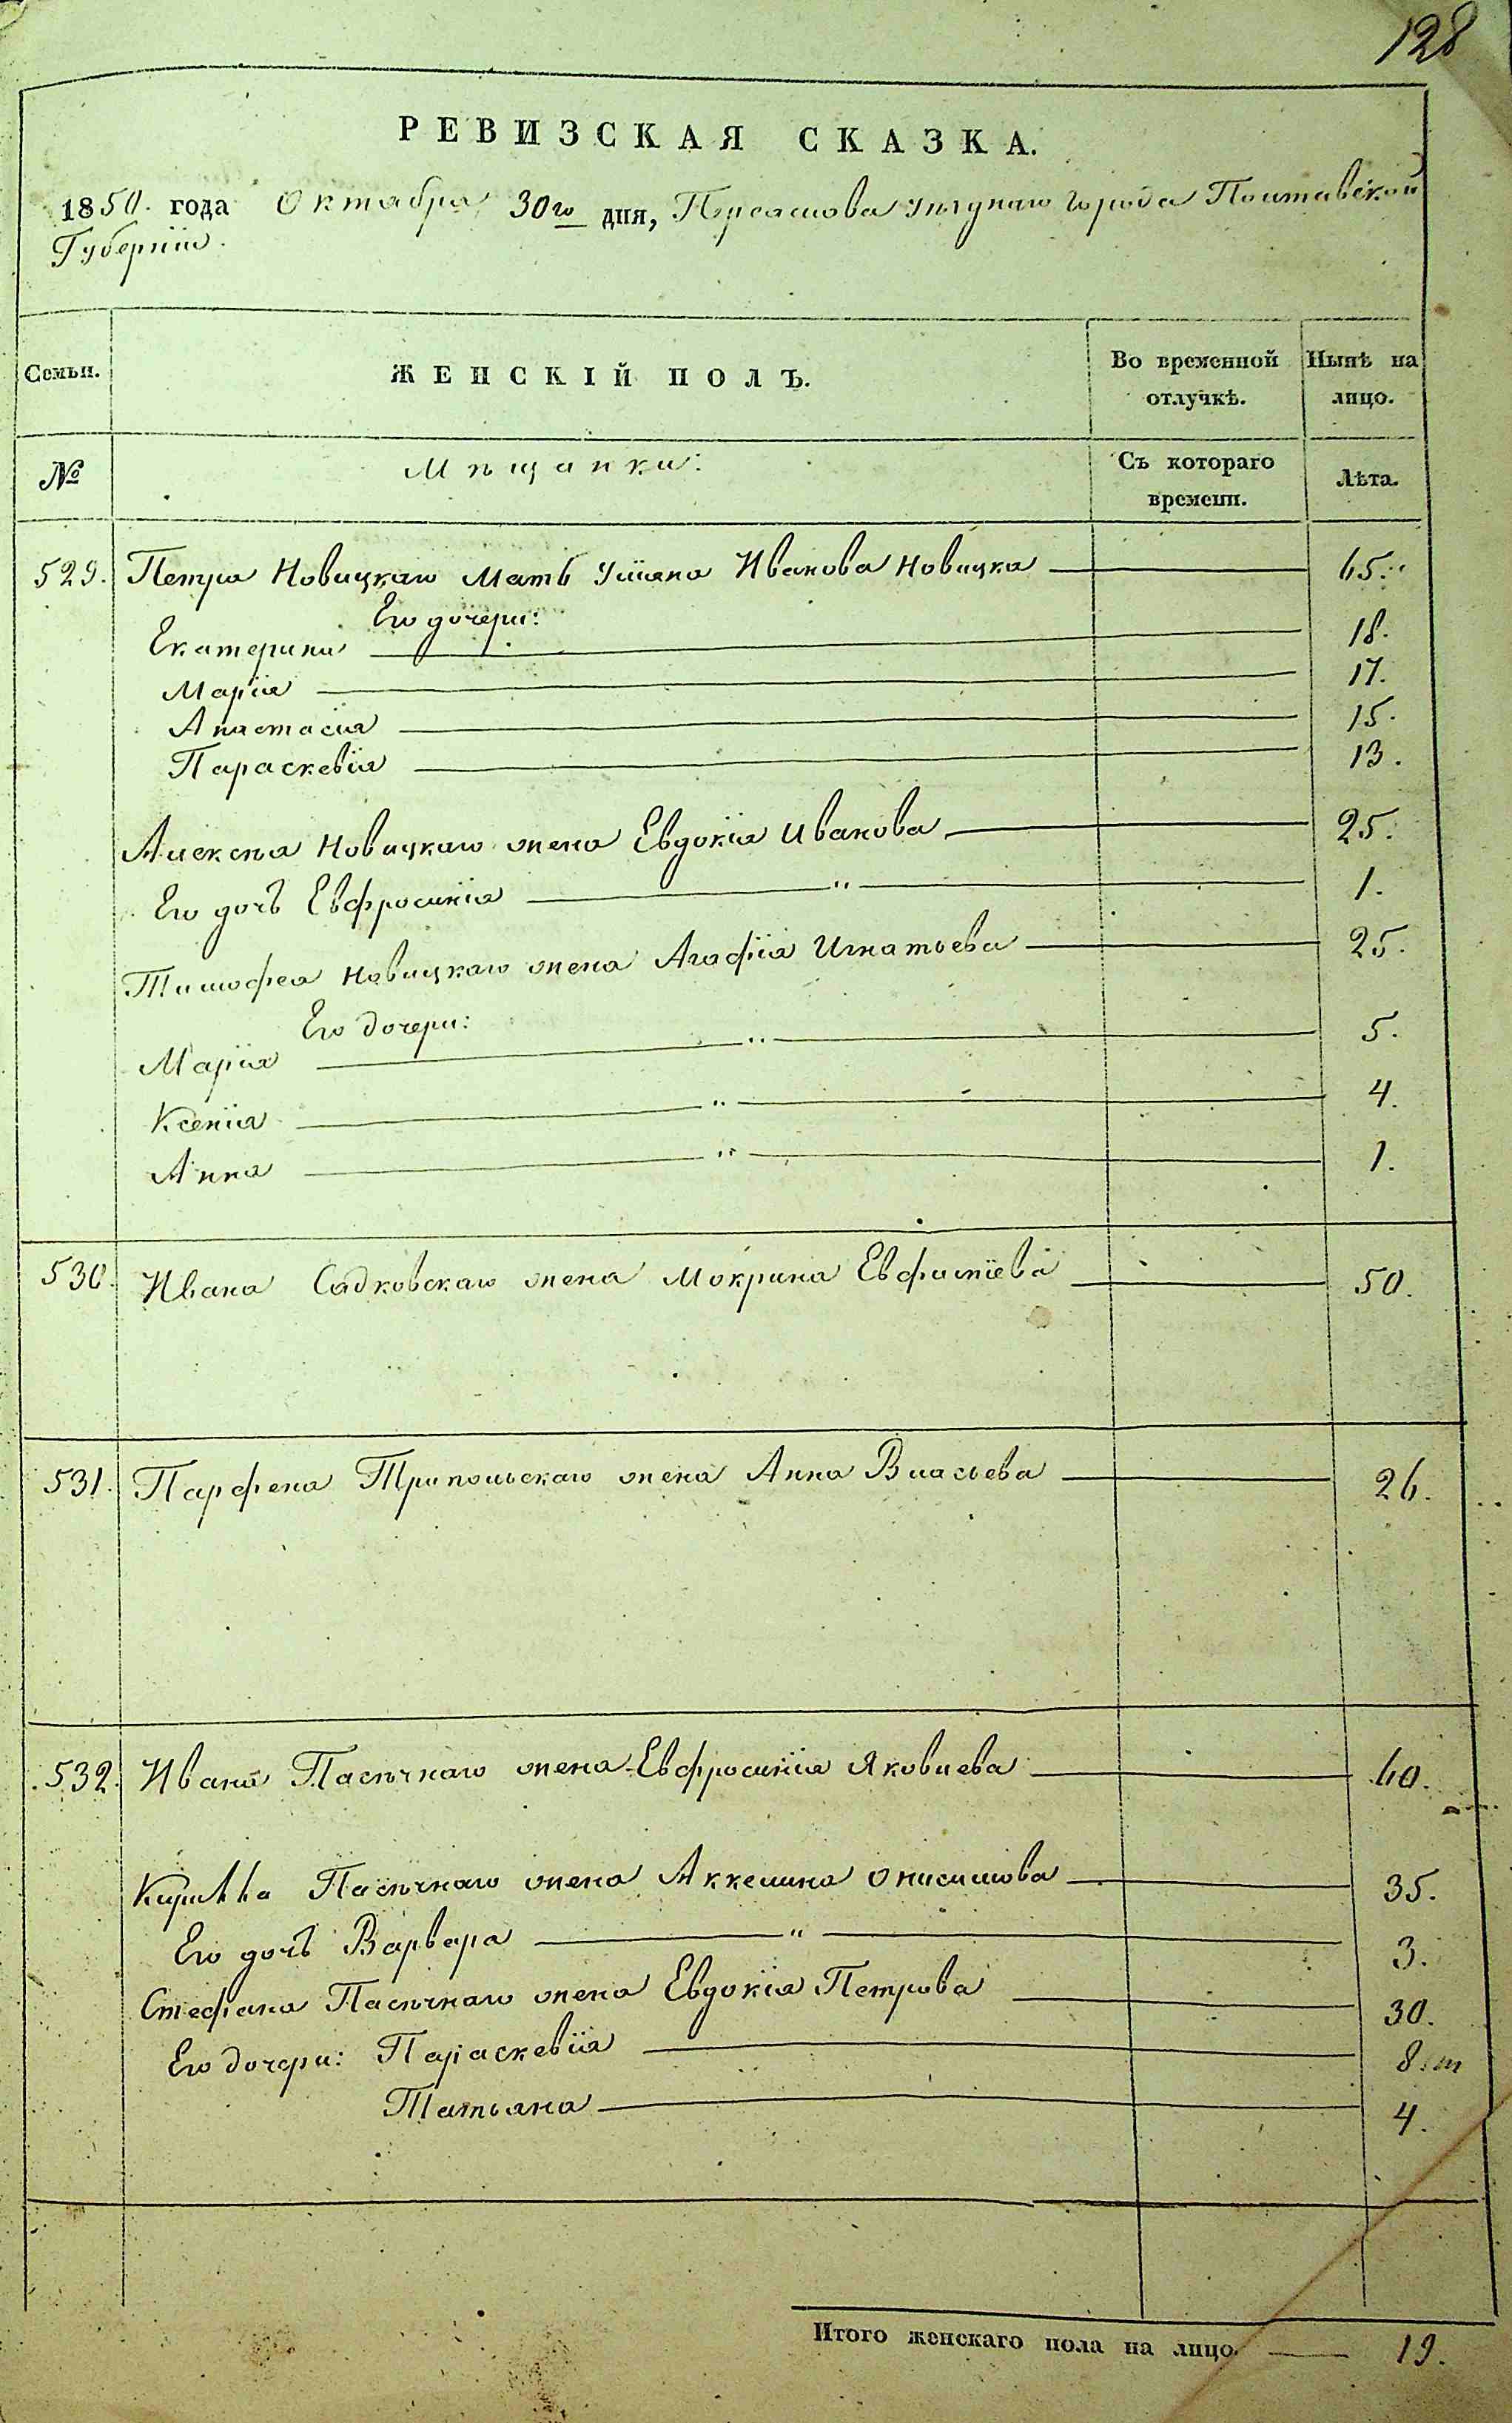 128
РЕВИЗСКАЯ СКАЗКА.
1850. года Октября 30го дня, Переяслова уѣзднаго города Полтавской
Губерніи.
Семьи.
ЖЕНСКІЙ ПОЛЪ.
Во временной отлучкѣ.
Нынѣ на лицо.
№
Мѣщанки:
Съ котораго времени.
Лѣта.
529. Петра Новицкаго мать Уліяна Иванова Новицка 65.
Его дочери:
Екатерина 18.
Марія 17.
Анастасія 15.
Параскевія 13.
Алексѣя Новицкаго жена Евдокія Иванова 25.
Его дочь Евфросинія " 1.
Тимофея Новицкаго жена Агафія Игнатьева 25.
Его дочери:
Марія " 5.
Ксенія " 4.
Анна " 1.
530. Ивана Садковскаго жена Мокрина Евфиміева 50.
531. Парфена Трипольскаго жена Анна Власьева 26.
532. Ивана Пасѣчнаго жена Евфросинія Яковлева 60.
Кирилла Пасѣчнаго жена Аккелина Онисимова 35.
Его дочь Варвара " 3.
Стефана Пасѣчнаго жена Евдокія Петрова 30.
Его дочери: Параскевія 8.
Татьяна 4.
Итого женскаго пола на лицо. 19.